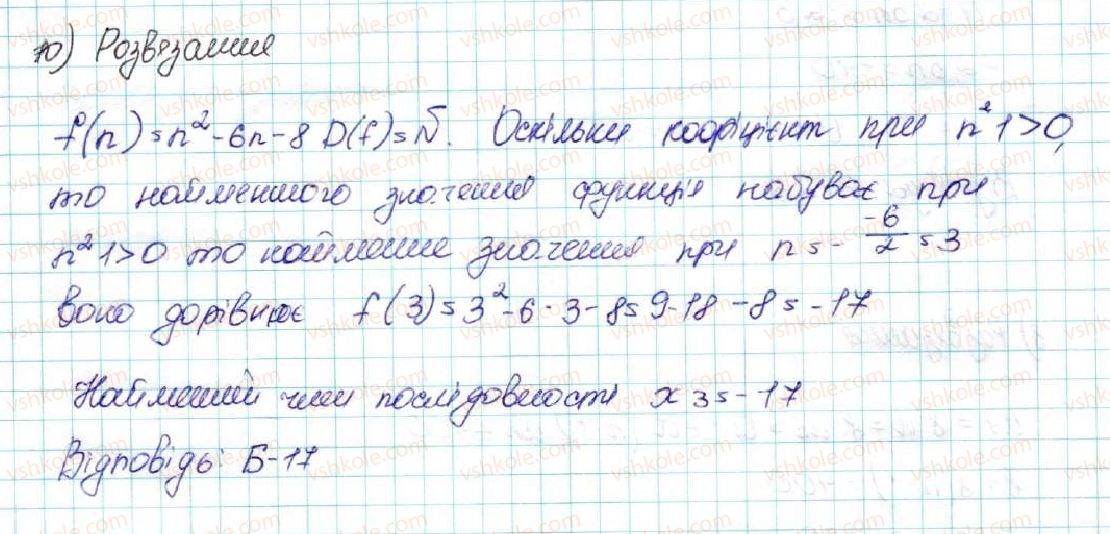 10) Розв'язання
f(n) = n² - 6n - 8 D(f) = N. Оскільки коефіцієнт при n² 1 > 0,
то найменшого значення функція набуває при
n² 1 > 0 то найменше значення при n = - -6/2 = 3
воно дорівнює f(3) = 3² - 6 · 3 - 8 = 9 - 18 - 8 = -17
Найменший член послідовності x3 = -17
Відповідь: Б - 17